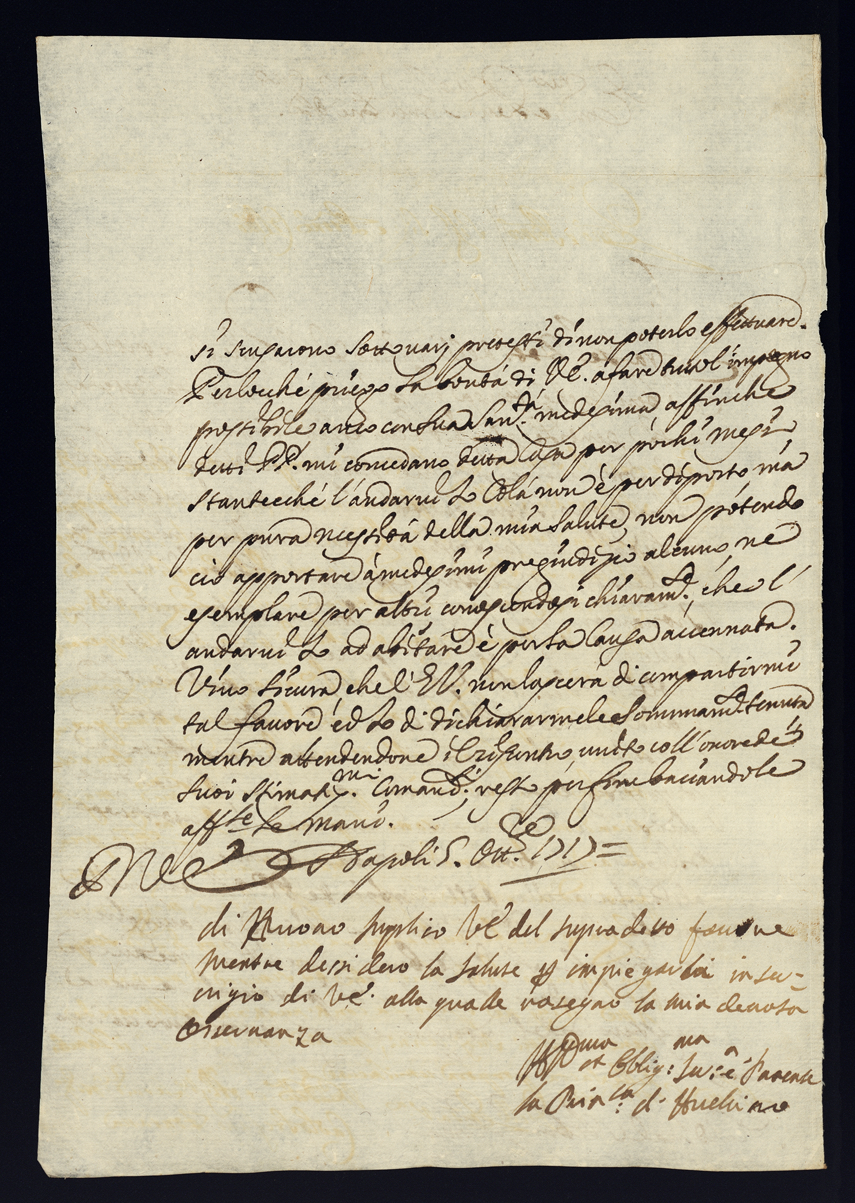 si scusarono sotto varj pretesti di non poterlo effettuare.
Perlocché priego la bontá di VE. á fare tutto l'impegno
possibile anco con Sua San.tá medesima affinche
detti PP. mi concedano detta Casa per pochi mesi,
stantecché l'andarvi Io Colá non é per diporto, má
per pura necessitá della mia Salute, non potendo
ció apportare á medesimi pregiudizio alcuno, ne
esemplare per altri conoscendosi chiaram.te, che l'
andarvi Io ad abitare é per la Causa accennata.
Vivo sicura, che l'EV. non lascerá di compartirmi
tal favore, ed Io di dichiararmele sommam.te tenuta
mentre attendendone il riscontro, unito coll'onore dé
suoi stimatis.mi Comandi, resto per fine baciandole
aff.te le mani.
Napoli 5. Ott.re 1717=
di Nuouo suplico VE del supradetto fauore
mentre desidero la salute per impiegarla in ser=
uigio di VE. alla qualle rasegno la mia deuota
Osseruanza
Aff.ma et Oblig:ma Ser:a é Parente
la Prin.sa: di Auellino